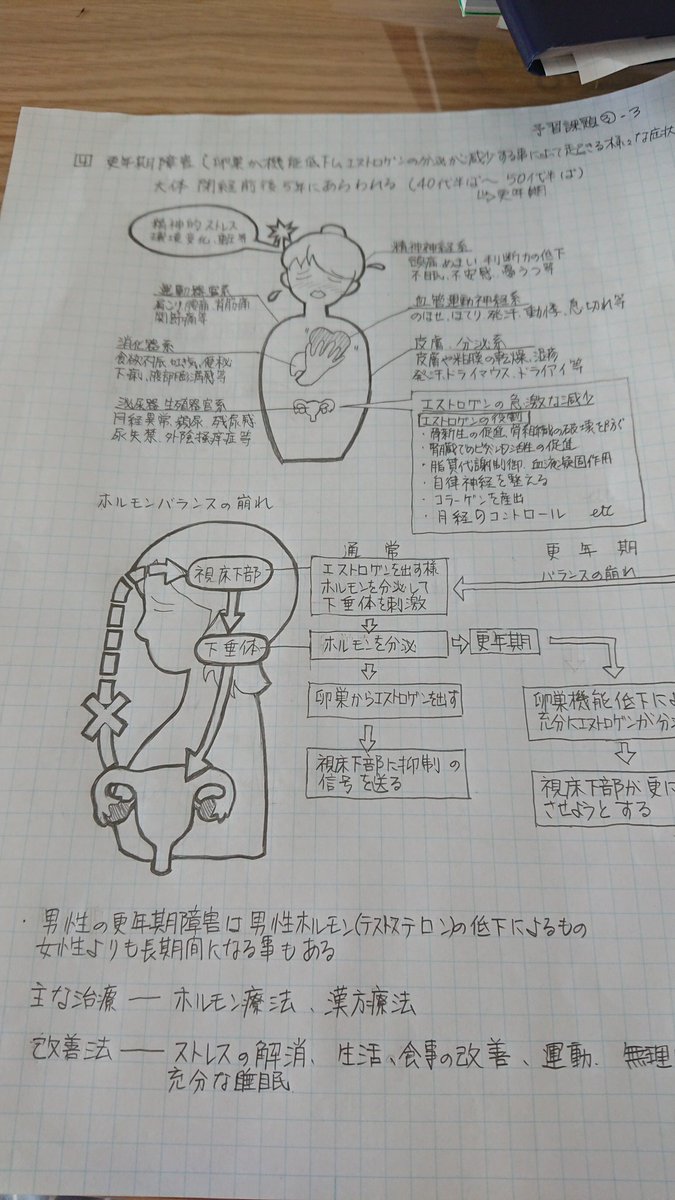 予習課題②-3
4 更年期障害(卵巣が機能低下しエストロゲンの分泌が減少する事によって起きる様々な症状
大体 閉経前後5年にあらわれる(40代半ば〜50代半ば)
↳更年期
精神的ストレス
環境変化、等
精神神経系
頭痛、めまい、判断力の低下
不眠、不安感、鬱うつ等
運動器官系
肩こり、腰痛、背筋痛
関節痛等
血管運動神経系
のぼせ、ほてり、発汗、動悸、息切れ等
消化器系
食欲不振、吐き気、便秘
下痢、腹部膨満感等
皮膚、分泌系
皮膚や粘膜の乾燥、湿疹
発汗、ドライマウス、ドライアイ等
泌尿器生殖器官系
月経異常、頻尿、残尿感
尿失禁、外陰掻痒症等
エストロゲンの急激な減少
エストロゲンの役割
・骨新生の促進、骨組織の破壊を防ぐ
・腎臓でのビタミンD活性の促進
・脂質代謝制御、血液凝固作用
・自律神経を整える
・コラーゲンを産出
・月経のコントロール etc
ホルモンバランスの崩れ
視床下部
下垂体
通常
エストロゲンを出す様
ホルモンを分泌して
下垂体を刺激
ホルモンを分泌
卵巣からエストロゲンを出す
視床下部に抑制の
信号を送る
更年期
バランスの崩れ
更年期
卵巣機能低下によ
充分にエストロゲンが分
視床下部が更に
させようとする
・男性の更年期障害は男性ホルモン(テストステロン)の低下によるもの
女性よりも長期間になる事もある
主な治療 ― ホルモン療法、漢方療法
改善法 ― ストレスの解消、生活、食事の改善、運動、無理
充分な睡眠